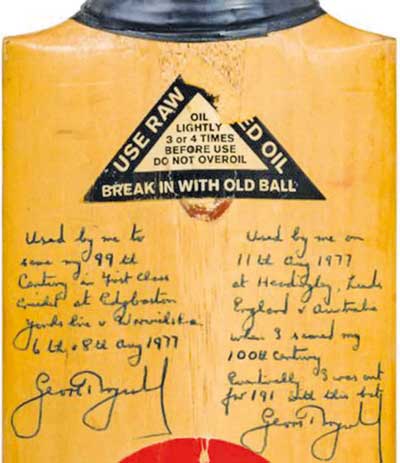 USE RAW
ED OIL
OIL
LIGHTLY
3 or 4 TIMES
BEFORE USE
DO NOT OVEROIL
BREAK IN WITH OLD BALL
Used by me to
score my 99th
Century in First Class
Cricket at Edgbaston
Yorkshire v Warwickshire
6th & 8th Aug 1977
Geoff Boycott
Used by me on
11th Aug 1977
at Headingley, Leeds
England v Australia
when I scored my
100th Century
Eventually I was out
for 191 with this bat
Geoff Boycott